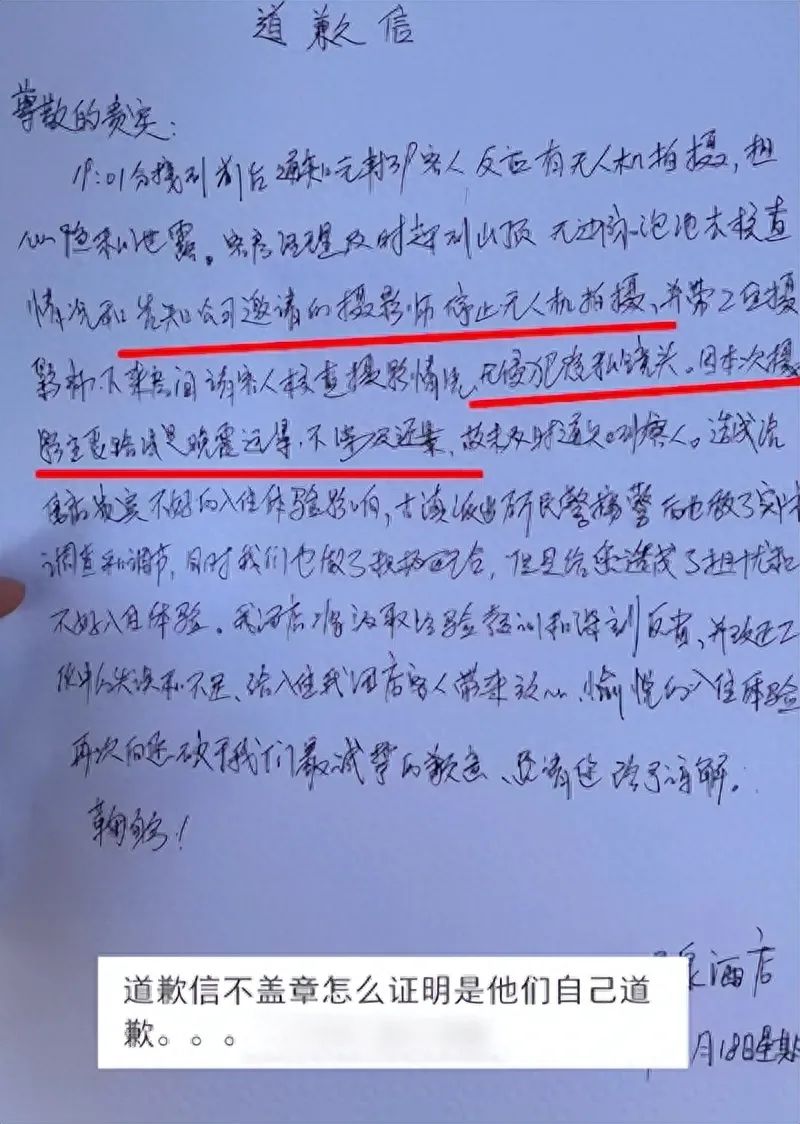 道歉信
尊敬的贵宾:
19:01分接到前台通知元
客人反应有无人机拍摄,担
心隐私泄露。客房经理及时赶到山顶无边际泡池去核查
情况和告知公司邀请的摄影师停止无人机拍摄、并带工程摄
影师下来房间请客人核查摄影情况,无侵犯隐私镜头。因本次摄
影主要拍摄是晚霞远景,不涉及近景、故未及时通知到客人。造成给
贵宾不好的入住体验影响,古
派出所民警接警后也做了实地
调查和调节,同时我们也做了积极配合,但是给您造成了担忧和
不好入住体验。我酒店将汲取经验教训和深刻反省、并改进工
作中的失误和不足、给入住我酒店客人带来放心、愉悦的入住体验
再次向您致于我们最诚挚的歉意、还请您给予谅解。
鞠躬!
泉酒店
月18日星期
道歉信不盖章怎么证明是他们自己道
歉。。。